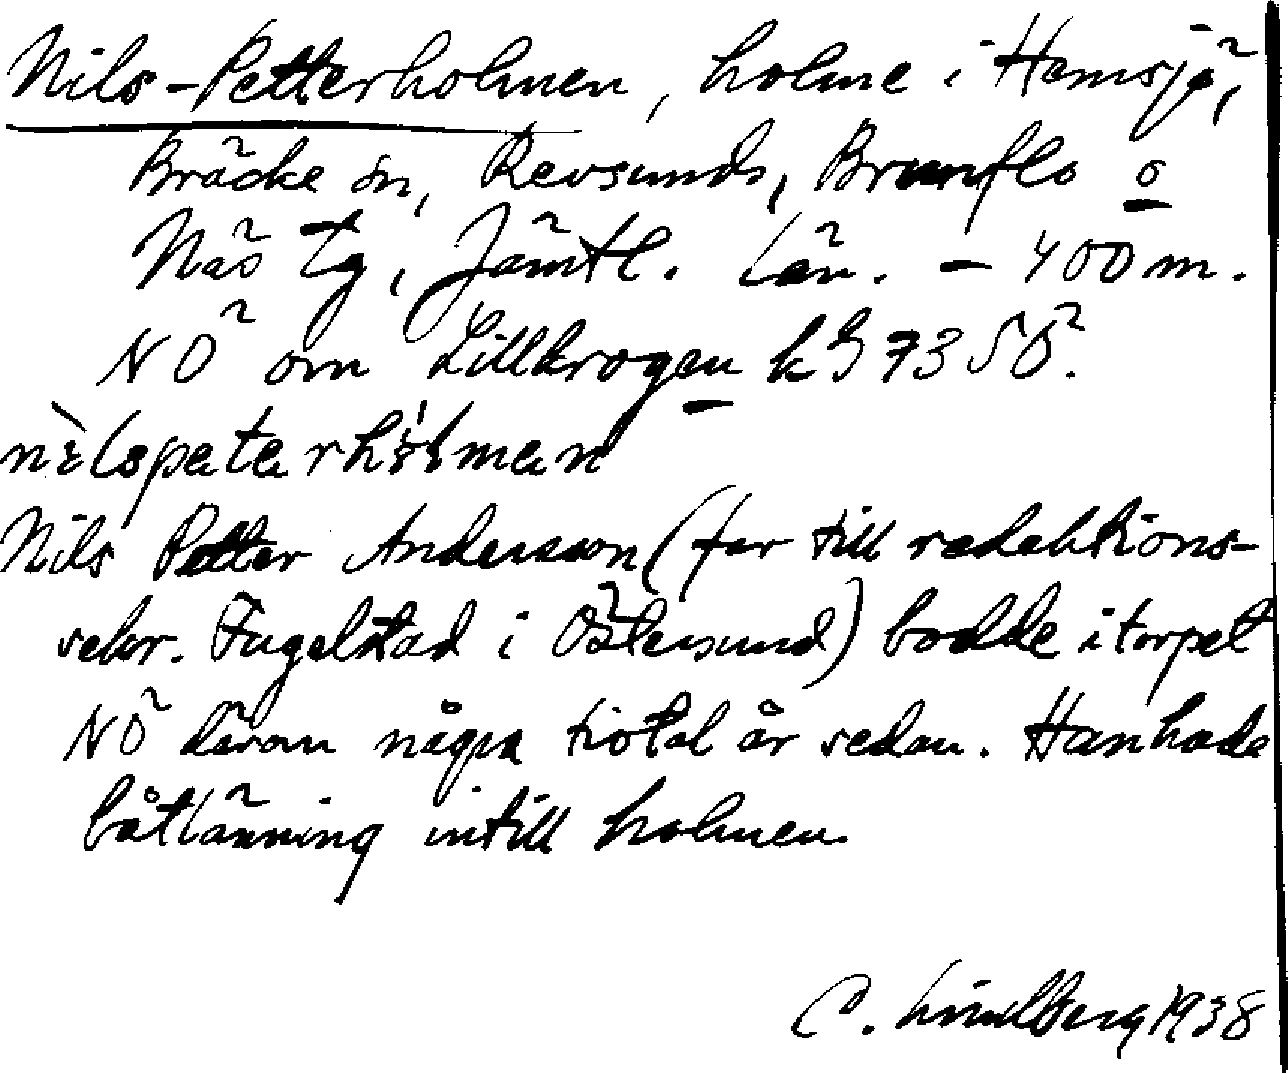 Nils-Petterholmen, holme i Hemsjö,
Bräcke sn, Revsunds, Brunflo o
Näs tg, Jämtl. län. - 400 m.
NÖ om Lillkrogen k973SÖ.
Nils Petter Andersson (far till redaktions-
sekr. Fugelstad i Östersund) bodde i torpet
NÖ därom några tiotal år sedan. Han hade
båtlänning intill holmen.
C. Lindberg 1938